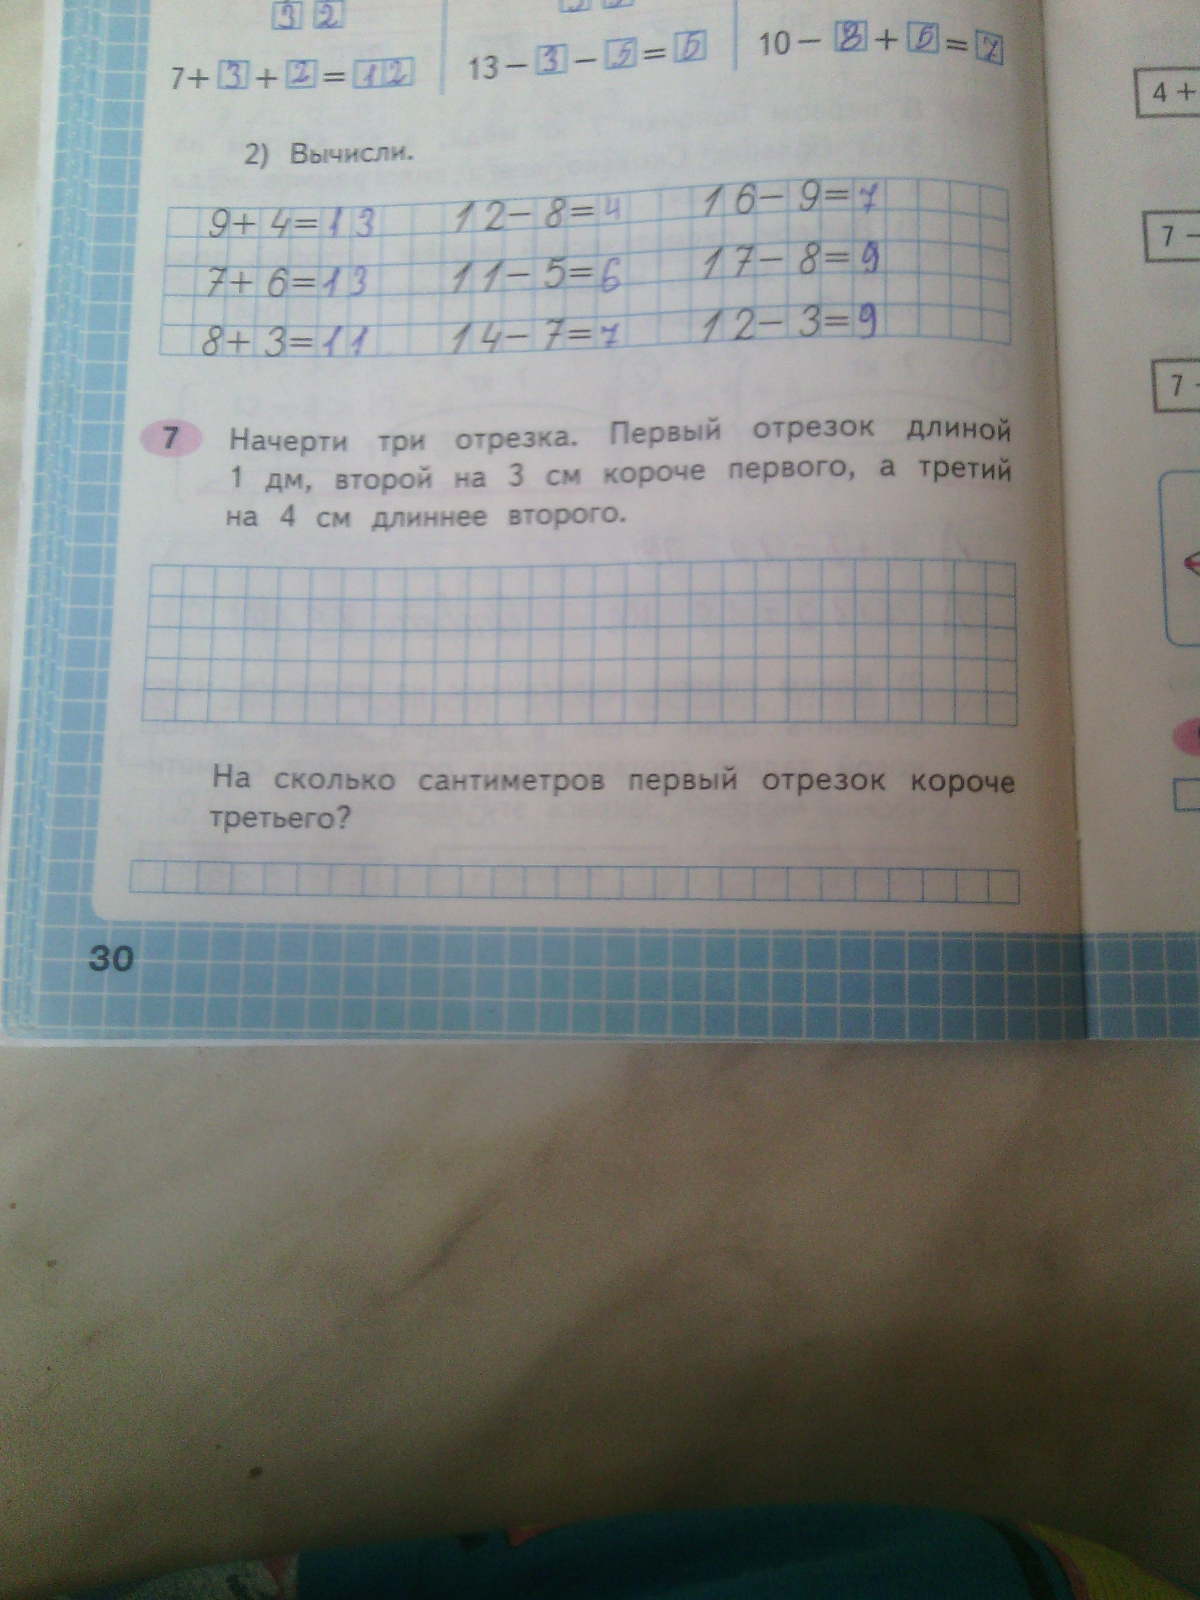 3 2
7+ 3 + 2 = 12
13 – 3 – 5 = 5
10 – 8 + 5 = 7
2) Вычисли.
9+ 4=13 12– 8=4 16– 9=7
7+ 6=13 11– 5=6 17– 8=9
8+ 3=11 14– 7=7 12– 3=9
7 Начерти три отрезка. Первый отрезок длиной
1 дм, второй на 3 см короче первого, а третий
на 4 см длиннее второго.
На сколько сантиметров первый отрезок короче
третьего?
30
4 +
7 –
7